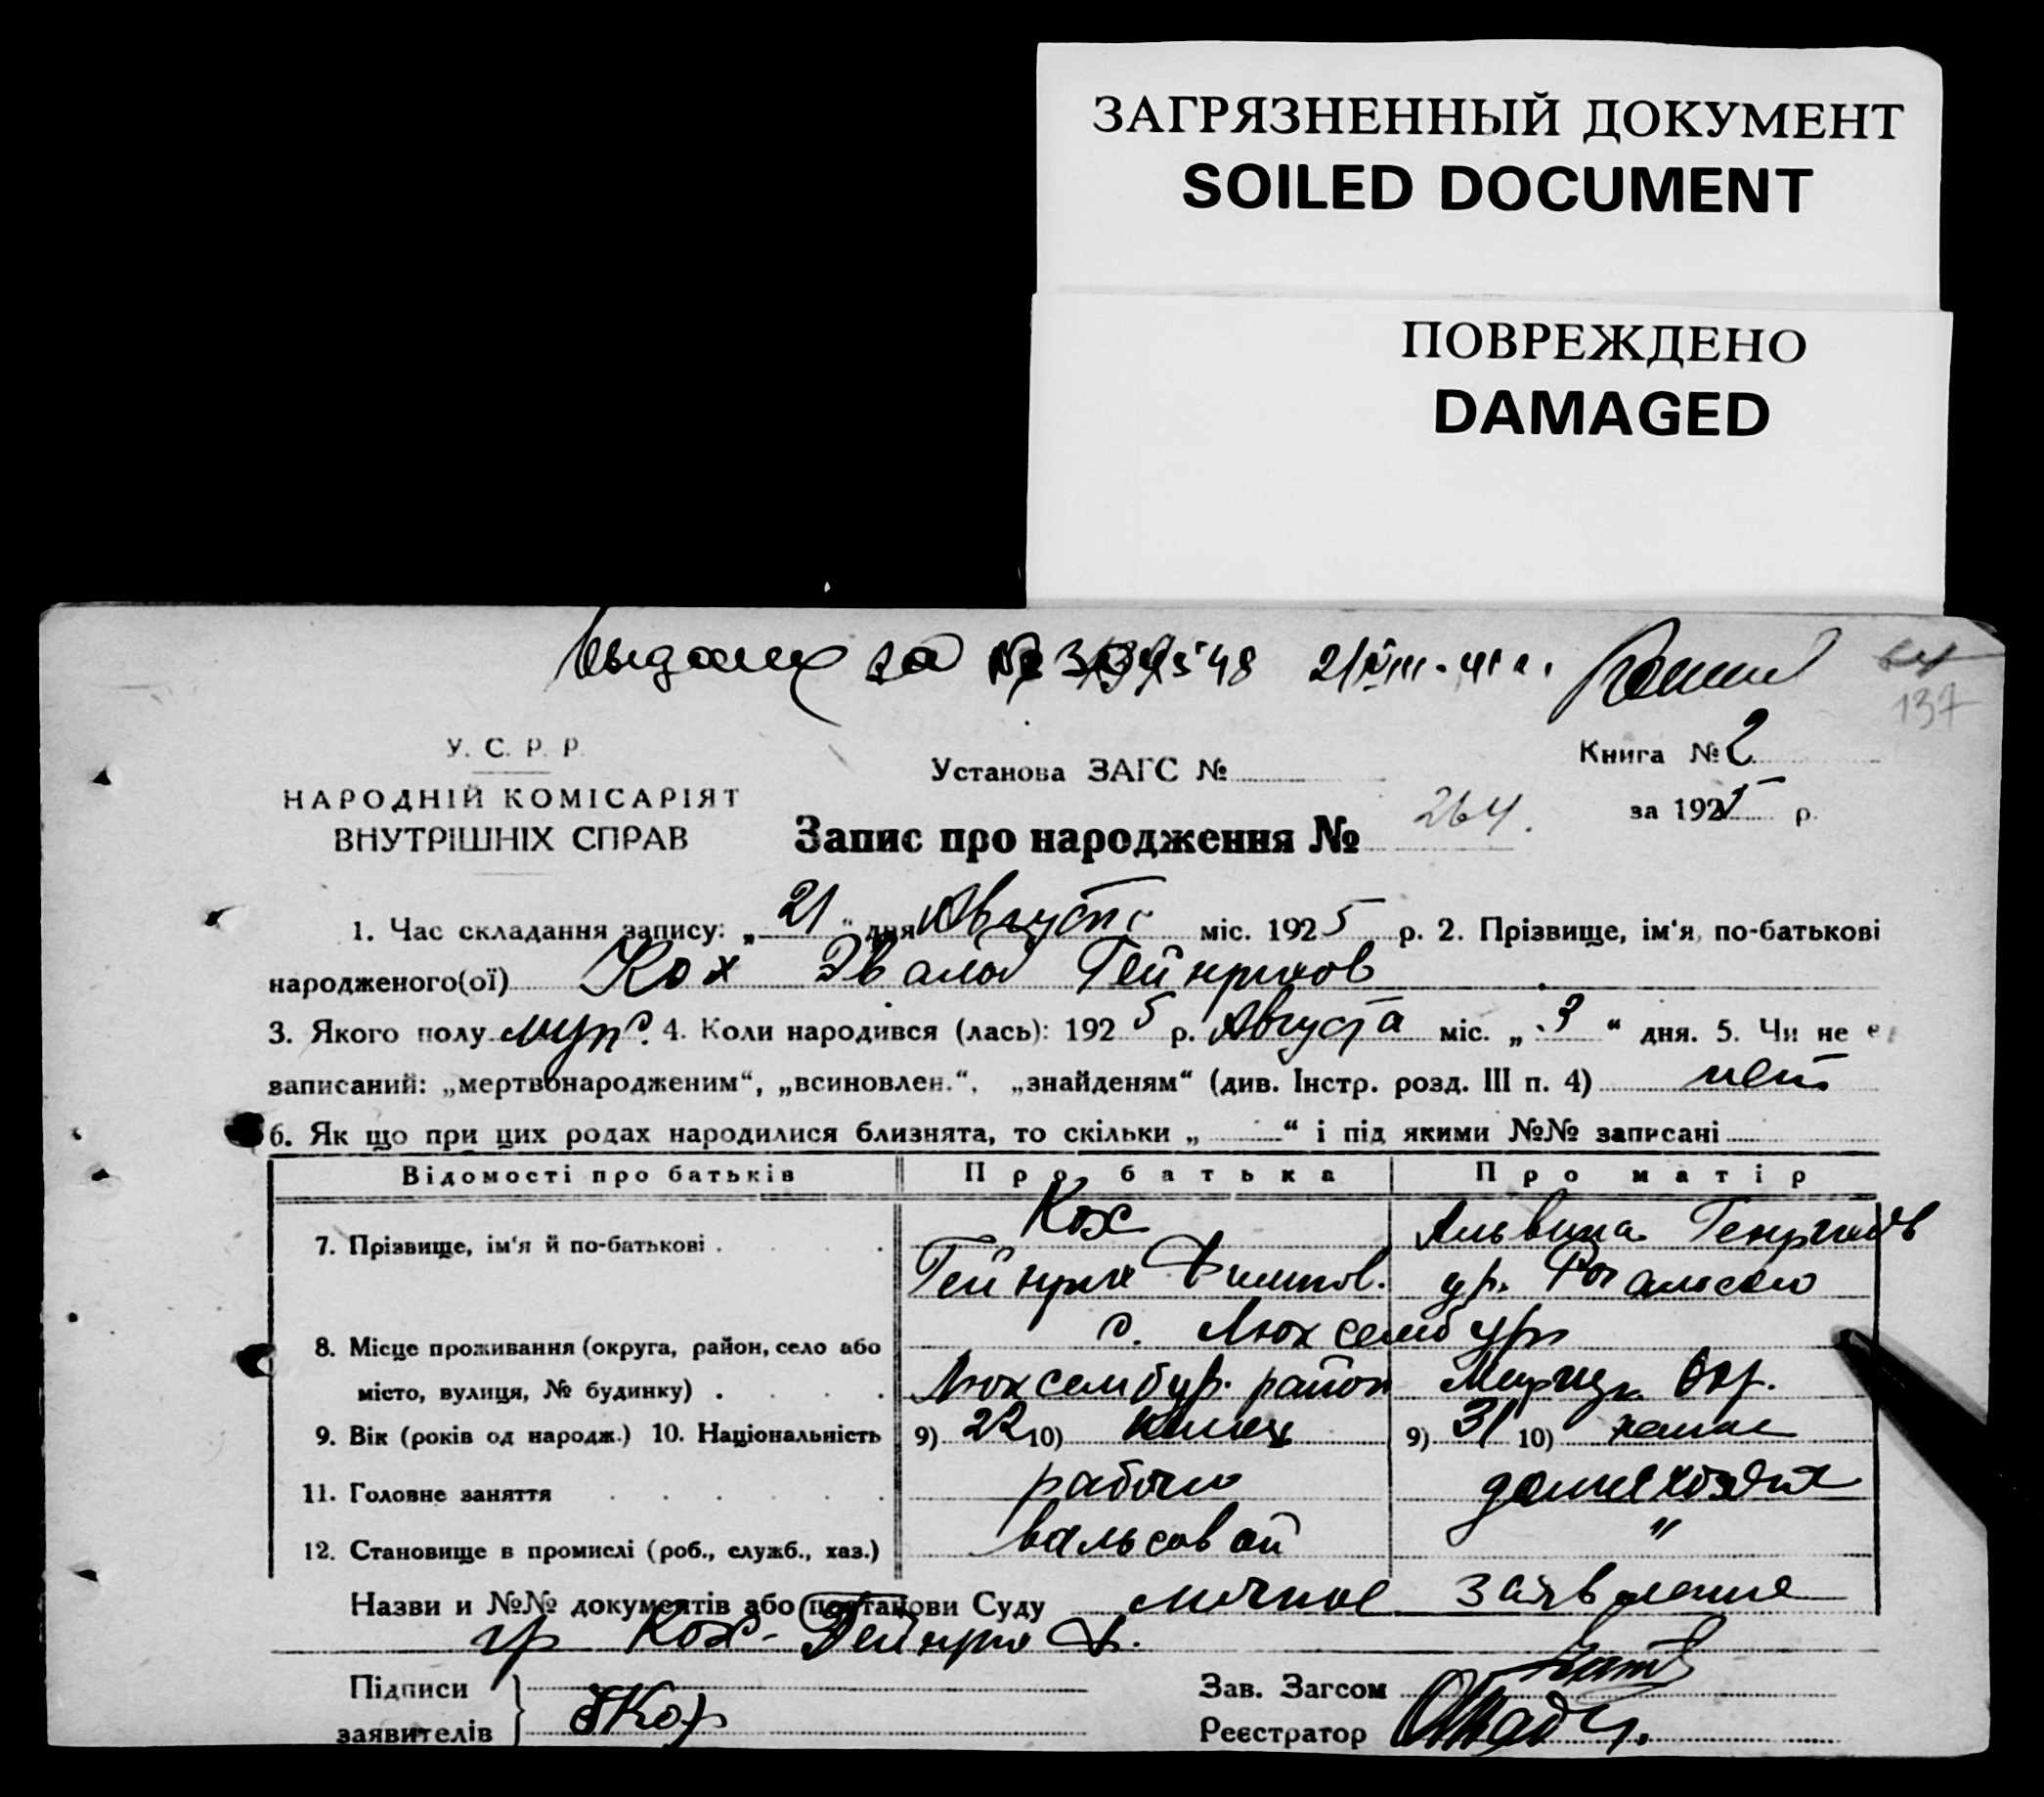 ЗАГРЯЗНЕННЫЙ ДОКУМЕНТ
SOILED DOCUMENT
ПОВРЕЖДЕНО
DAMAGED
за №
137
У. С. Р. Р.
НАРОДНІЙ КОМІСАРІЯТ
ВНУТРІШНІХ СПРАВ
Установа ЗАГС №
Книга № 2
за 1925 р.
Запис про народження № 264.
1. Час складання запису: „21“ дня Августа міс. 1925 р. 2. Прізвище, ім'я, по-батькові
народженого(ої) Кох Эвальд Гейнрихов
3. Якого полу муж. 4. Коли народився (лась): 1925 р. Августа міс. „3“ дня. 5. Чи не є
записаний: „мертвонародженим“, „всиновлен.“, „знайденям“ (див. Інстр. розд. III п. 4) нет
6. Як що при цих родах народилися близнята, то скільки „ “ і під якими №№ записані
Відомості про батьків Про батька Про матір
7. Прізвище, ім'я й по-батькові . . . . Кох Альвина
Гейнрих ур.
8. Місце проживання (округа, район, село або с. Люксембург
місто, вулиця, № будинку) . . . . Люксембур. район Окр.
9. Вік (років од народж.) 10. Національність 9) 22 10) немец 9) 31 10) немк
11. Головне заняття . . . . . .
12. Становище в промислі (роб., служб., хаз.) "
Назви и №№ документів або постанови Суду личное заявление
гр Кох Гейнрих
Підписи
заявителів Кох
Зав. Загсом
Реєстратор